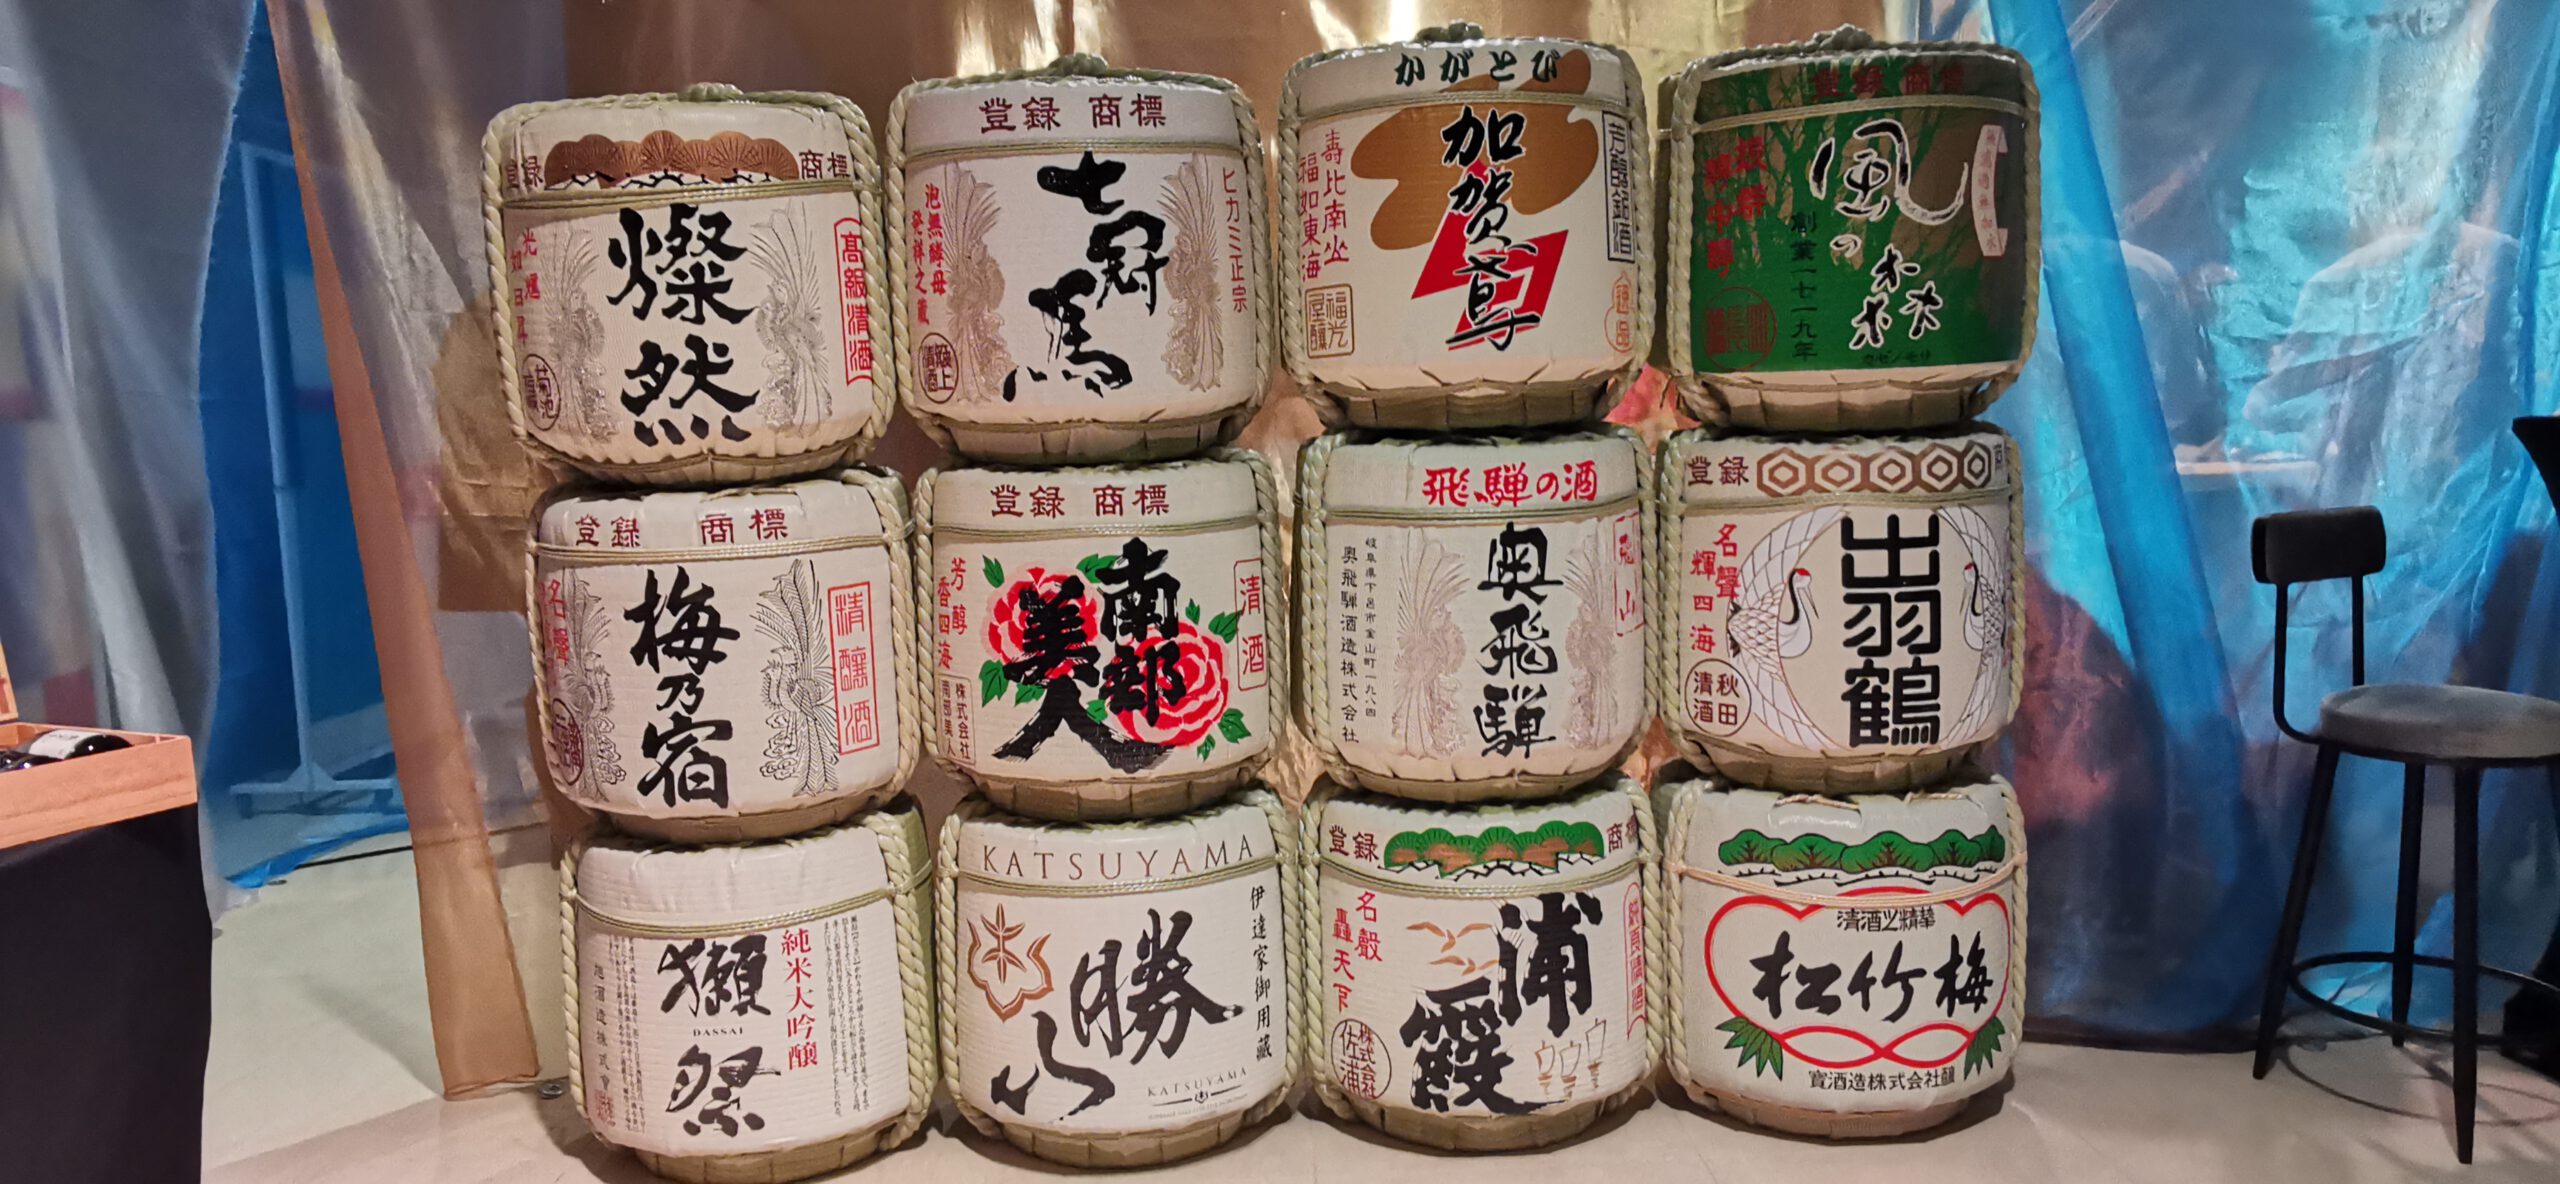 登録 商標
燦然
光輝
如日月
高級清酒
菊池
登録 商標
七冠馬
泡無酵母
発祥之蔵
ヒカミ正宗
極上
清酒
かがとび
加賀鳶
壽比南山
福如東海
福光
屋醸
芳醇銘酒
登録商標
風の森
創業一七一九年
カゼノモリ
登録 商標
梅乃宿
名聲
清釀酒
登録 商標
南部
美人
芳醇
香四海
清酒
株式会社
南部美人
飛騨の酒
奥飛騨
岐阜県下呂市金山町一九八四
奥飛騨酒造株式会社
登録
出羽鶴
名聲
輝四海
秋田
清酒
獺祭
DASSAI
純米大吟醸
旭酒造株式會社
KATSUYAMA
勝山
伊達家御用蔵
KATSUYAMA
登録 商標
浦霞
名聲
轟天下
株式会社
佐浦
清酒之精華
松竹梅
寶酒造株式会社醸